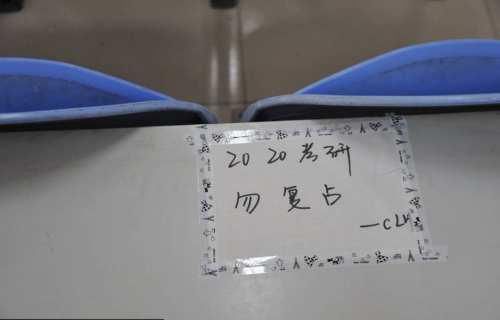 2020考研
勿复占
—CLH